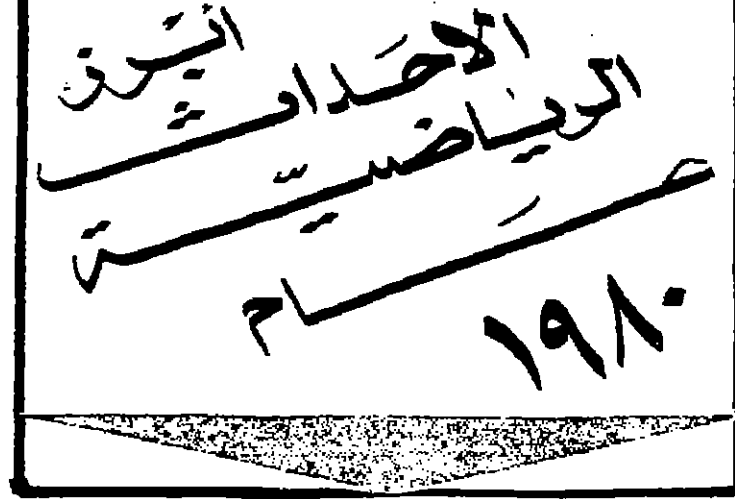 أبرز
الاحداث
الرياضية
عام
١٩٨٠